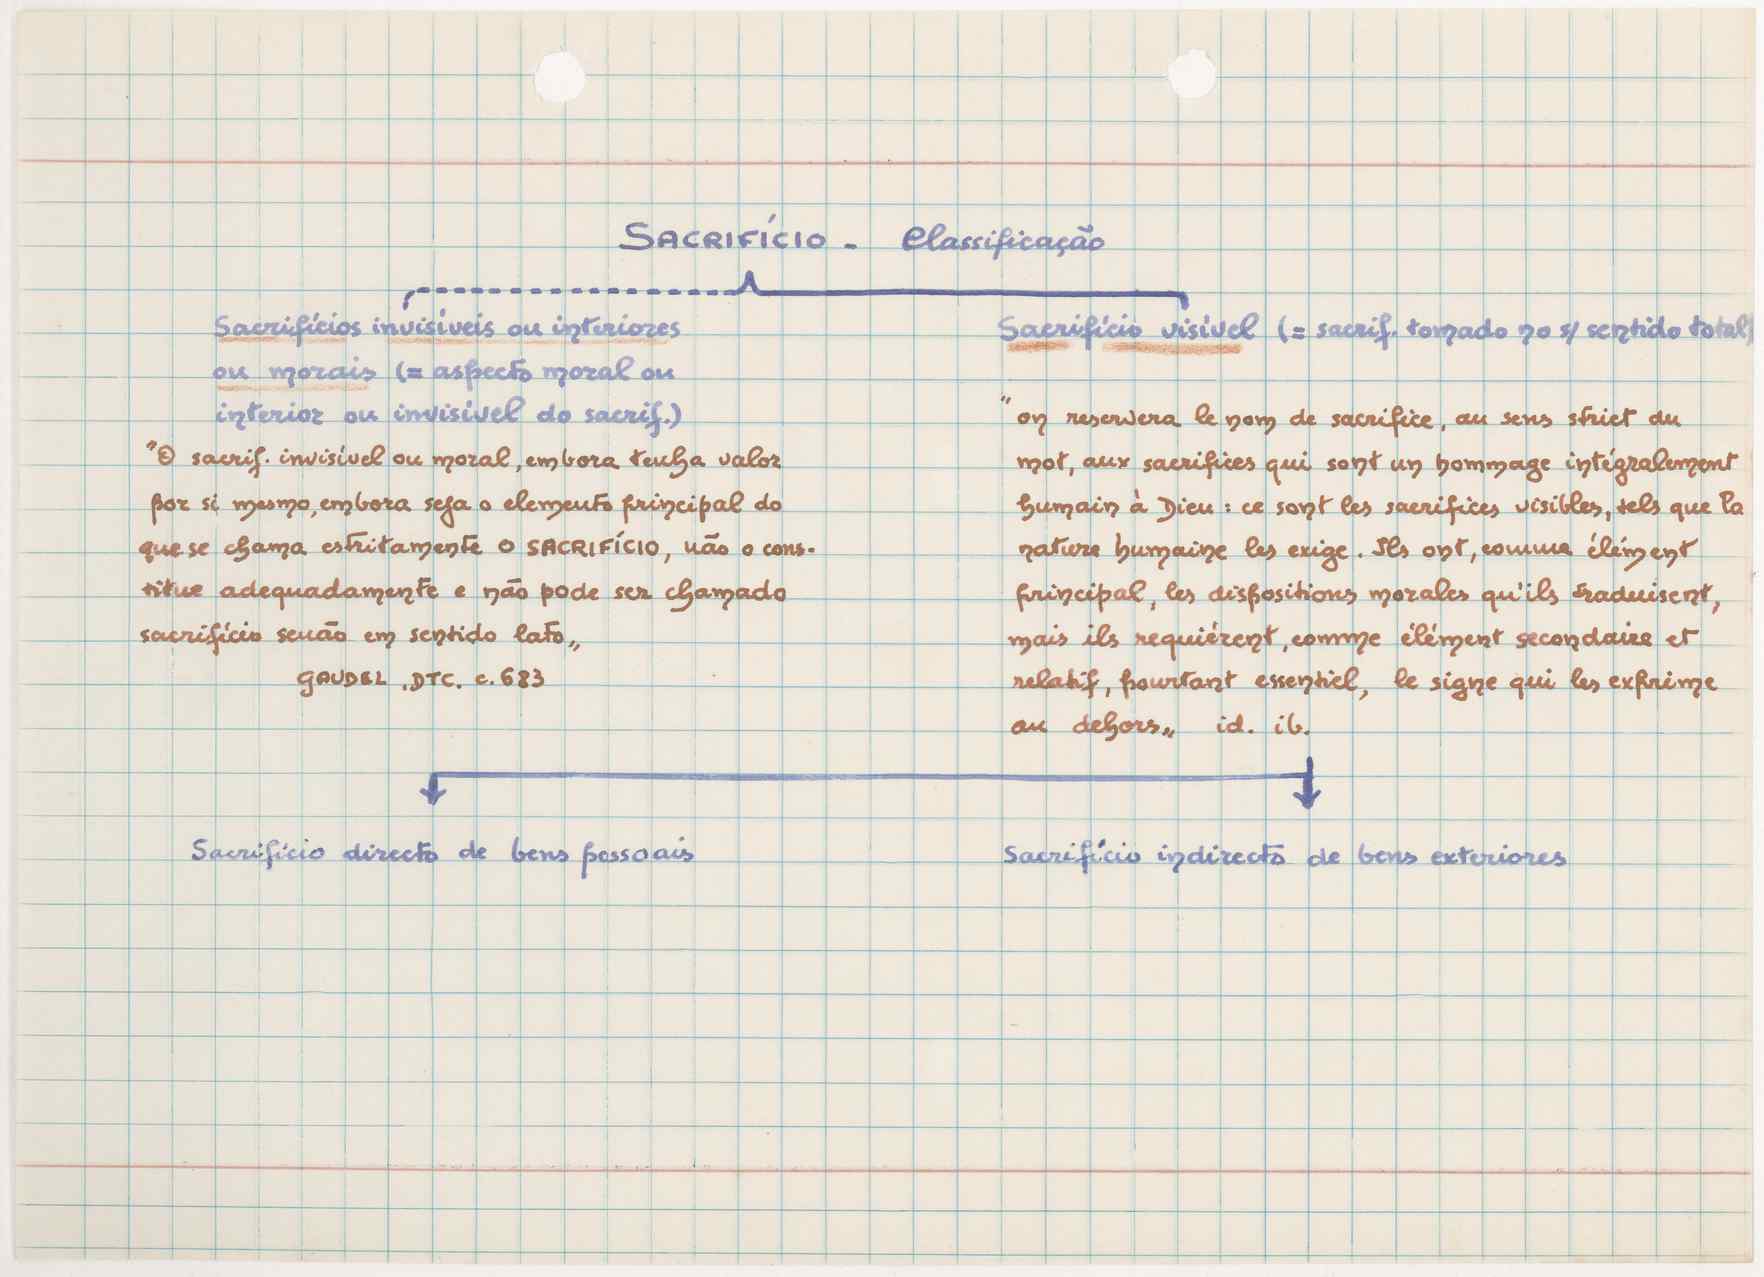 SACRIFÍCIO - Classificação
Sacrifícios invisíveis ou interiores
ou morais (= aspecto moral ou
interior ou invisível do sacrif.)
"O sacrif. invisível ou moral, embora tenha valor
por si mesmo, embora seja o elemento principal do
que se chama estritamente O SACRIFÍCIO, não o cons-
titue adequadamente e não pode ser chamado
sacrifício senão em sentido lato„
GAUDEL, DTC. c. 683
Sacrifício visível (= sacrif. tomado no s/ sentido total)
"on reservera le nom de sacrifice, au sens strict du
mot, aux sacrifices qui sont un hommage intégralement
humain à Dieu : ce sont les sacrifices visibles, tels que la
nature humaine les exige. Ils ont, comme élément
principal, les dispositions morales qu'ils traduisent,
mais ils requiérent, comme élément secondaire et
relatif, pourtant essentiel, le signe qui les exprime
au dehors„ id. ib.
Sacrifício directo de bens pessoais
Sacrifício indirecto de bens exteriores